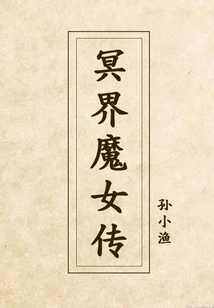 冥界魔女传
孙小渔